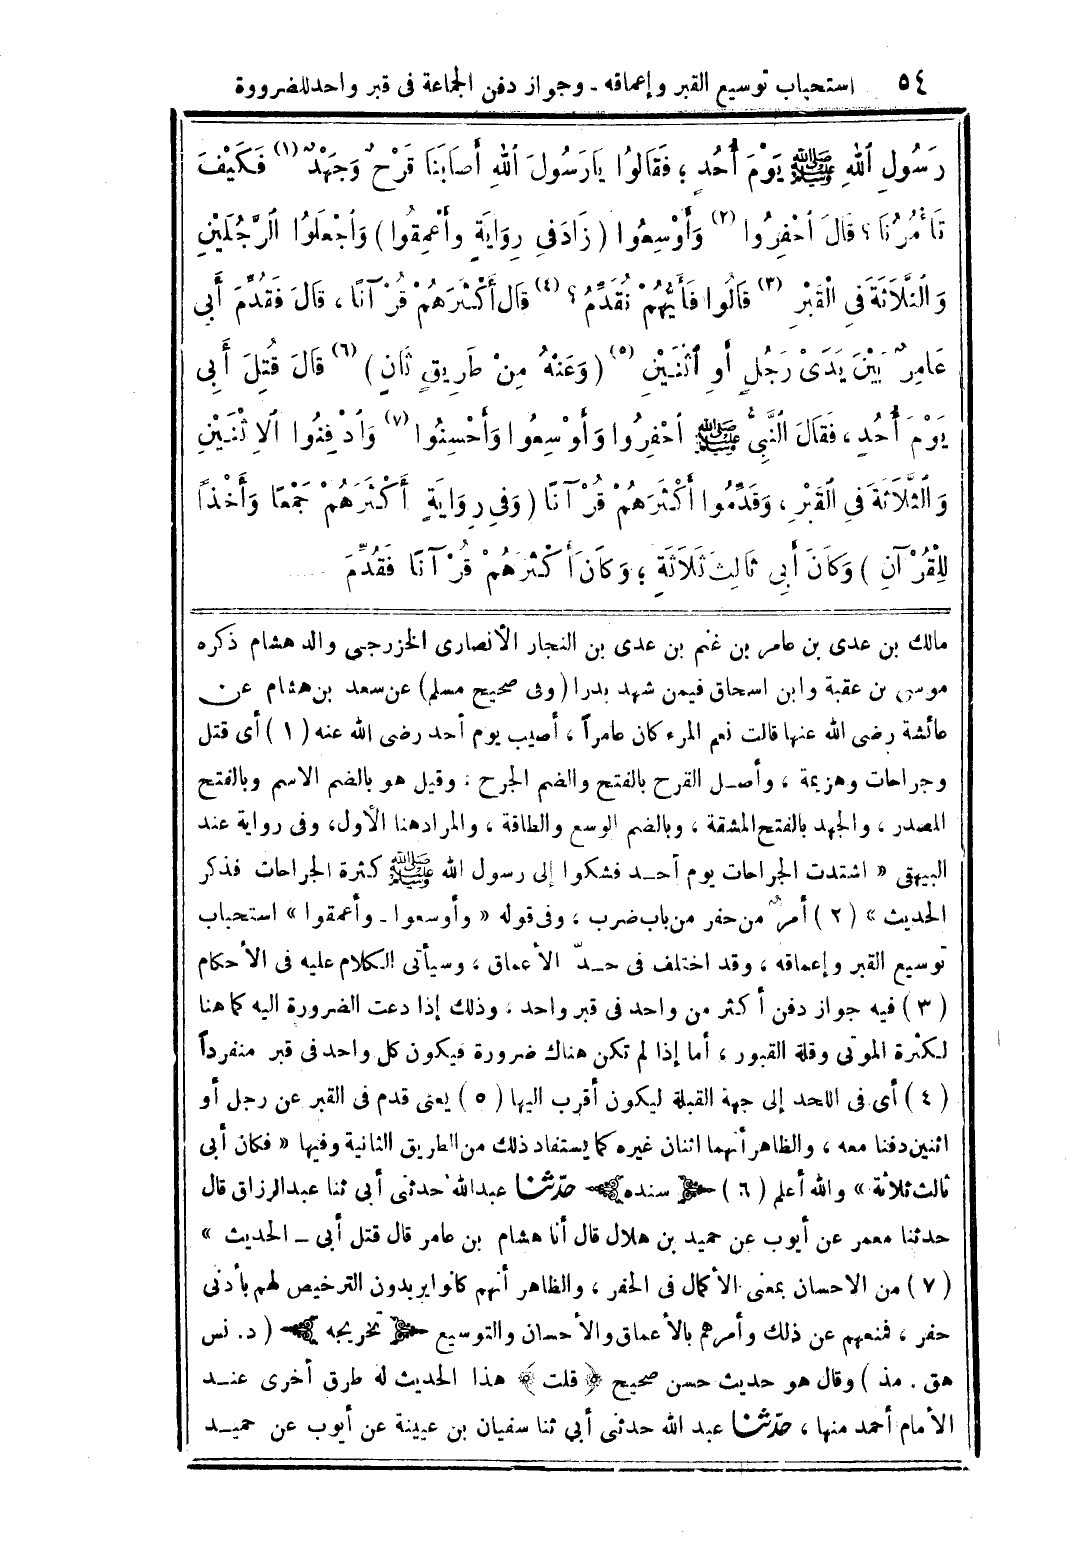 ٥٤ استحباب توسيع القبر وإعماقه - وجواز دفن الجماعة فى قبر واحد للضرورة
رَسُولِ ٱللهِ ﷺ يَوْمَ أُحُدٍ ؛ فَقَالُوا يَارَسُولَ ٱللهِ أَصَابَنَا قَرْحٌ وَجَهْدٌ (١) فَكَيْفَ
تَأْمُرُنَا ؟ قَالَ ٱحْفِرُوا (٢) وَأَوْسِعُوا (زَادَ فِى رِوَايَةٍ وأَعْمِقُوا) وَٱجْعَلُوا ٱلرَّجُلَيْنِ
وَٱلثَّلَاثَةَ فِى الْقَبْرِ (٣) قَالُوا فَأَيُّهُمْ نُقَدِّمُ ؟ (٤) قَالَ أَكْثَرَهُمْ قُرْآنًا ، قَالَ فَقُدِّمَ أَبِى
عَامِرٌ بَيْنَ يَدَىْ رَجُلٍ أَوِ ٱثْنَيْنِ (٥) (وَعَنْهُ مِنْ طَرِيقٍ ثَانٍ) (٦) قَالَ قُتِلَ أَبِى
يَوْمَ أُحُدٍ ، فَقَالَ ٱلنَّبِىُّ ﷺ ٱحْفِرُوا وَأَوْسِعُوا وَأَحْسِنُوا (٧) وَٱدْفِنُوا الِاثْنَيْنِ
وَٱلثَّلَاثَةَ فِى ٱلْقَبْرِ ، وَقَدِّمُوا أَكْثَرَهُمْ قُرْآنًا (وَفِى رِوَايَةٍ أَكْثَرَهُمْ جَمْعًا وَأَخْذًا
لِلْقُرْآنِ) وَكَانَ أَبِى ثَالِثَ ثَلَاثَةٍ ؛ وَكَانَ أَكْثَرَهُمْ قُرْآنًا فَقُدِّمَ
مالك بن عدى بن عامر بن غنم بن عدى بن النجار الأنصارى الخزرجى والد هشام ذكره
موسى بن عقبة وابن اسحاق فيمن شهد بدرا (وفى صحيح مسلم) عن سعد بن هشام عن
عائشة رضى الله عنها قالت نعم المرء كان عامراً ، أصيب يوم أحد رضى الله عنه (١) أى قتل
وجراحات وهزيمة ، وأصـل القرح بالفتح والضم الجرح : وقيل هو بالضم الاسم وبالفتح
المصدر ، والجهد بالفتح المشقة ، وبالضم الوسع والطاقة ، والمراد هنا الأول، وفى رواية عند
البيهقى « اشتدت الجراحات يوم أحـد فشكوا إلى رسول الله ﷺ كثرة الجراحات فذكر
الحديث » (٢) أمرٌ من حفر من باب ضرب ، وفى قوله « وأوسعوا - وأعمقوا » استحباب
توسيع القبر وإعماقه ، وقد اختلف فى حـدّ الأعماق ، وسيأتى الكلام عليه فى الأحكام
(٣) فيه جواز دفن أكثر من واحد فى قبر واحد ، وذلك إذا دعت الضرورة اليه كما هنا
لكثرة الموتى وقلة القبور ، أما إذا لم تكن هناك ضرورة فيكون كل واحد فى قبر منفرداً
(٤) أى فى اللحد إلى جهة القبلة ليكون أقرب اليها (٥) يعنى قدم فى القبر عن رجل أو
اثنين دفنا معه ، والظاهر أنهما اثنان غيره كما يستفاد ذلك من الطريق الثانية وفيها « فكان أبى
ثالث ثلاثة » والله أعلم (٦) سنده حدّثنا عبدالله حدثنى أبى ثنا عبدالرزاق قال
حدثنا معمر عن أيوب عن حميد بن هلال قال أنا هشام بن عامر قال قتل أبى ـ الحديث »
(٧) من الاحسان بمعنى الأكمال فى الحفر ، والظاهر أنهم كانوا يريدون الترخيص لهم بأدنى
حفر ، فمنعهم عن ذلك وأمرهم بالأعماق والأحسان والتوسيع تخريجه (د. نس
هق . مذ) وقال هو حديث حسن صحيح ﴿ قلت ﴾ هذا الحديث له طرق أخرى عنـد
الأمام أحمد منها ، حدّثنا عبد الله حدثنى أبي ثنا سفيان بن عيينة عن أيوب عن حميـد